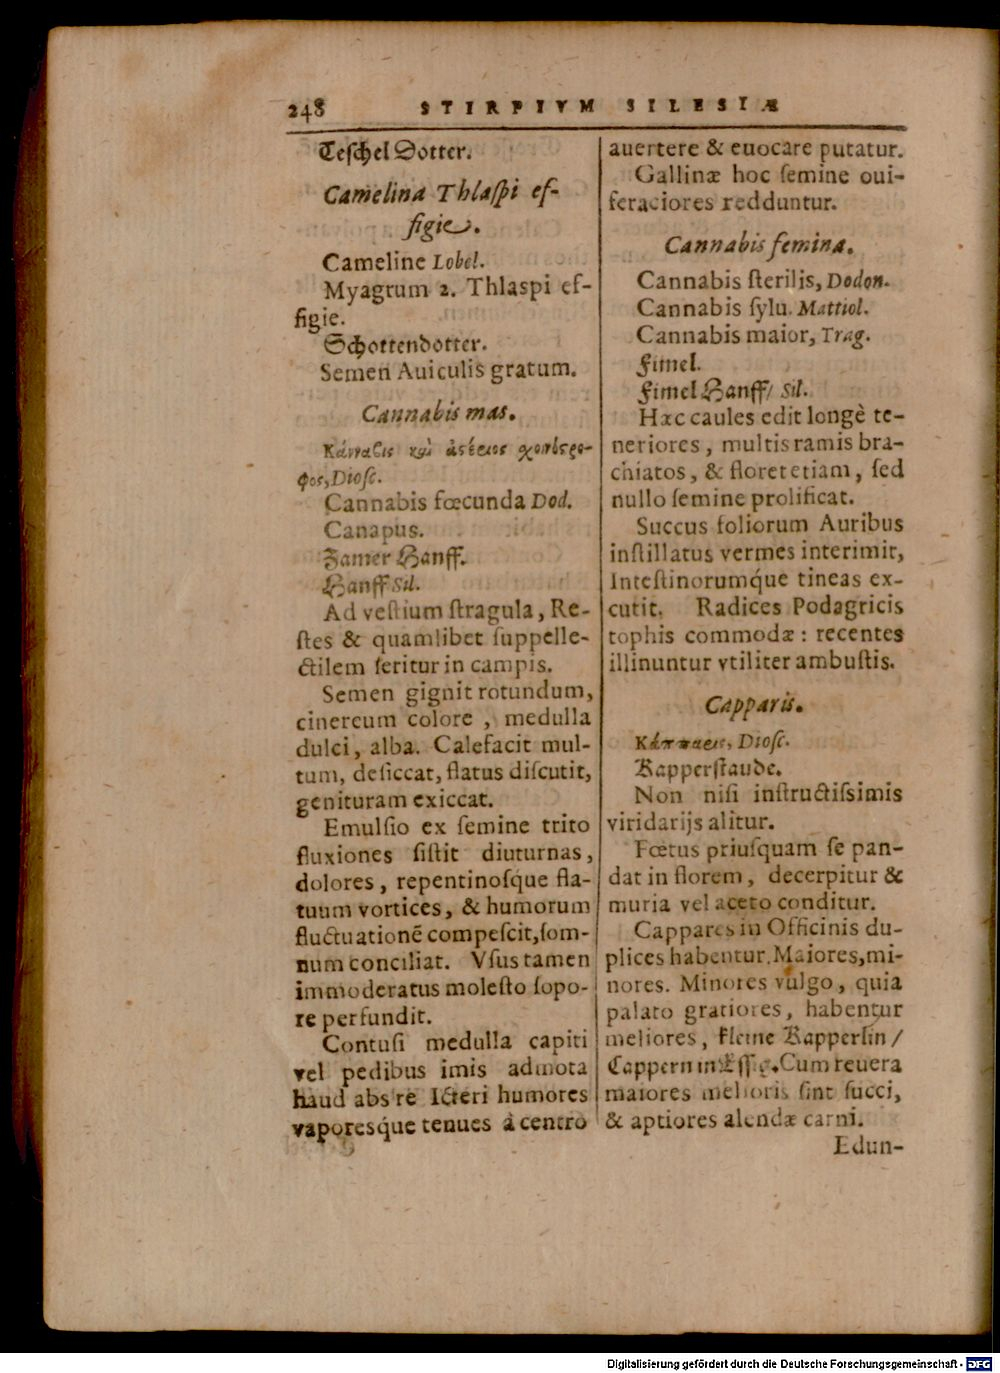 248 STIRPIVM SILESIÆ
Teſchel Dotter.
Camelina Thlaſpi ef-
figie.
Cameline Lobel.
Myagrum 2. Thlaſpi ef-
figie.
Schottendotter.
Semen Auiculis gratum.
Cannabis mas.
Κάνναϐις
φος, Dioſc.
Cannabis fœcunda Dod.
Canapus.
Zamer Hanff.
Hanff Sil.
Ad veſtium ſtragula, Re-
ſtes & quamlibet ſuppelle-
ctilem ſeritur in campis.
Semen gignit rotundum,
cinereum colore , medulla
dulci, alba. Calefacit mul-
tum, deſiccat, flatus diſcutit,
genituram exiccat.
Emulſio ex ſemine trito
fluxiones ſiſtit diuturnas,
dolores, repentinoſque fla-
tuum vortices, & humorum
fluctuationē compeſcit, ſom-
num conciliat. Vſus tamen
immoderatus moleſto ſopo-
re perfundit.
Contuſi medulla capiti
vel pedibus imis admota
haud abs re Icteri humores
vaporesq́ue tenues à centro
auertere & euocare putatur.
Gallinæ hoc ſemine oui-
feraciores redduntur.
Cannabis femina.
Cannabis ſterilis, Dodon.
Cannabis ſylu. Mattiol.
Cannabis maior, Trag.
Fimel.
Fimel Hanff/ Sil.
Hæc caules edit longè te-
neriores , multis ramis bra-
chiatos, & floret etiam, ſed
nullo ſemine prolificat.
Succus foliorum Auribus
inſtillatus vermes interimit,
Inteſtinorumq́ue tineas ex-
cutit. Radices Podagricis
tophis commodæ : recentes
illinuntur vtiliter ambuſtis.
Capparis.
Κάππαρις, Dioſc.
Kapperſtaude.
Non niſi inſtructiſsimis
viridarijs alitur.
Fœtus priuſquam ſe pan-
dat in florem, decerpitur &
muria vel aceto conditur.
Cappares in Officinis du-
plices habentur. Maiores, mi-
nores. Minores vulgo, quia
palato gratiores, habentur
meliores, kleine Kapperlin/
Cappern in Eſſig. Cum reuera
maiores melioris ſint ſucci,
& aptiores alendæ carni.
Edun-
Digitalisierung gefördert durch die Deutsche Forschungsgemeinschaft - DFG